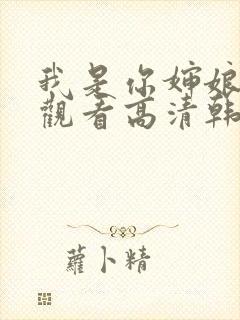 我是你婶娘
觀看高清韩
蘿卜精